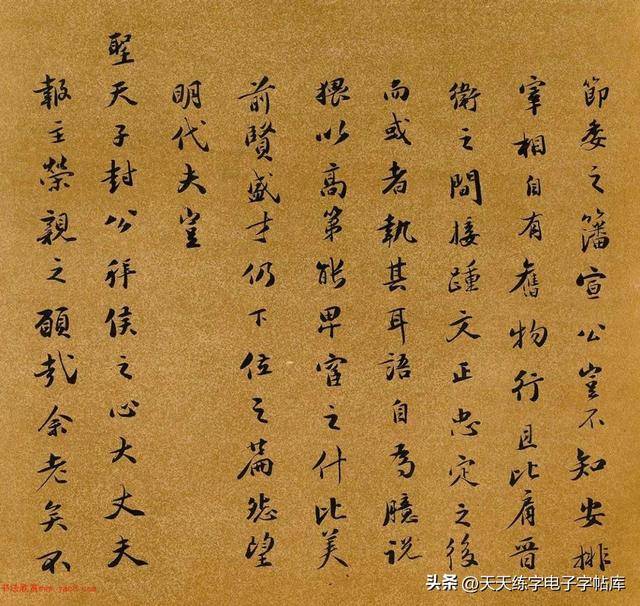 節委之籓宣公豈不知安排
宰相自有舊物行且比肩晉
衛之間接踵文正忠定之後
而或者執其耳語自為臆說
猥以高第能卑官之什比美
前賢盛才仍下位之篇怨望
明代夫豈
聖天子封公拜侯之心大丈夫
報主榮親之願哉余老矣不
书法欣赏www.yac8.com
头条 @天天练字电子字帖库